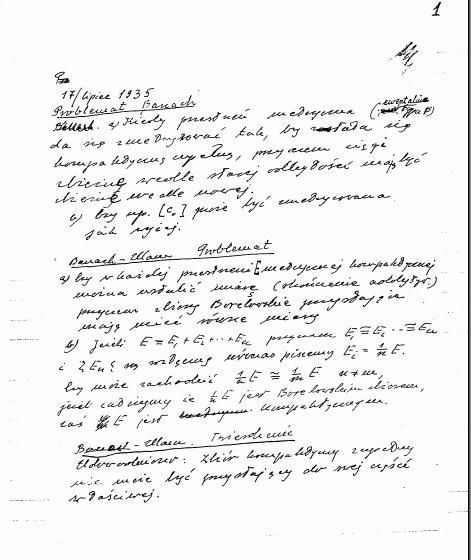 1
17/Lipiec 1935
Problemat Banach
a) Kiedy przestrzeń metryczna (ewentualnie typu B)
da się zmetryzować tak, by stała się
kompaktyczną zupełną, przyczem ciągi
zbieżne wedle starej odległości mają być
zbieżne wedle nowej.
b) Czy np. [c₀] może być metryzowana
jak wyżej.
Banach-Ulam Problemat
a) Czy w każdej przestrzeni E metrycznej kompaktycznej
można ustalić miarę (skończenie addytyw.)
przyczem zbiory Borelowskie przystające
mają mieć równe miary
b) Jeśli E = E₁+E₂+...+Eₙ przyczem E₁≅E₂...≅Eₙ
i {Eₙ} są rozłączne wówczas piszemy Eᵢ = 1/n E.
Czy może zachodzić 1/n E ≅ 1/m E n≠m,
jeśli zażądamy że 1/n E jest Borelowskim zbiorem,
zaś E jest kompaktycznym.
Banach-Ulam. Twierdzenie
Udowodniono: Zbiór kompaktyczny zupełny
nie może być przystający do swej części
właściwej.